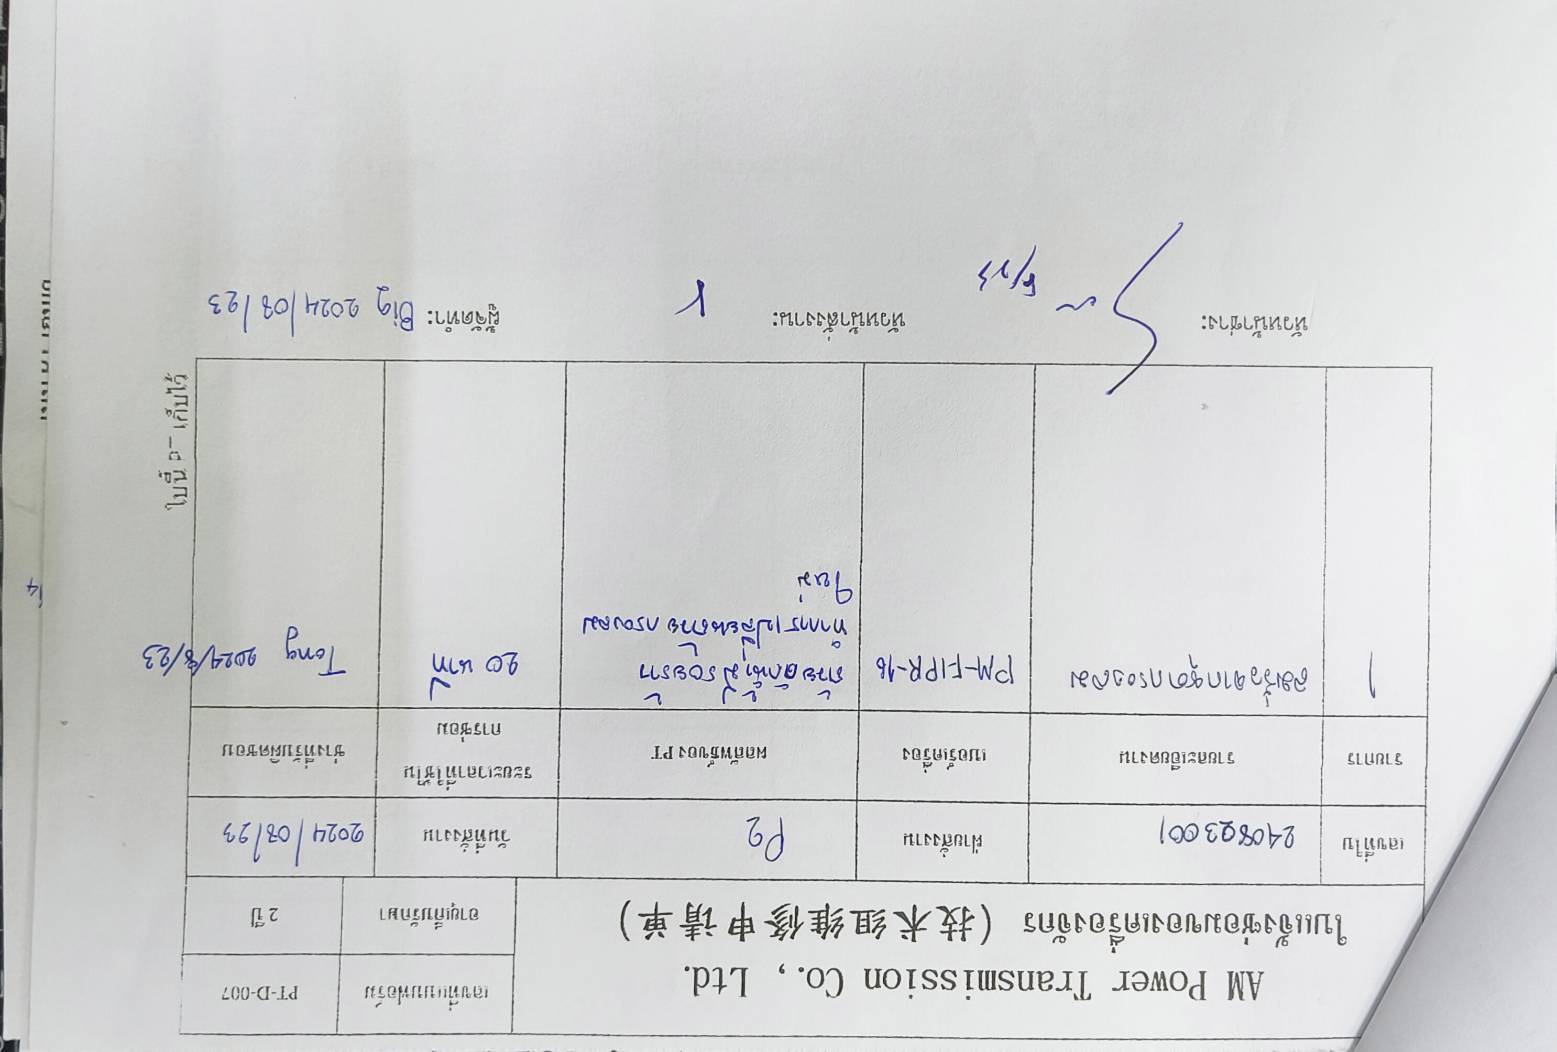 AM Power Transmission Co., Ltd.
ใบแจ้งซ่อมของเครื่องจักร (技术组维修申请单)
เลขที่แบบฟอร์ม PT-D-007
อายุเก็บรักษา 2 ปี
เลขที่ใบ 240823001 ฝ่ายสั่งงาน P2 วันที่สั่งงาน 2024/08/23
รายการ รายละเอียดงาน เบอร์เครื่อง ผลลัพธ์ของ PT ระยะเวลาที่ใช้ใน
การซ่อม ช่างที่รับผิดชอบ
1 ลมรั่วจากชุดกรองลม PM-FIPR-16 ถ้วยดักน้ำมีรอยร้าว 20 นาที Tong 2024/8/23
ทำการเปลี่ยนถ้วยกรองลม
ใหม่
หัวหน้าช่าง: หัวหน้าสั่งงาน: ผู้จัดทำ: Big 2024/08/23
8/23